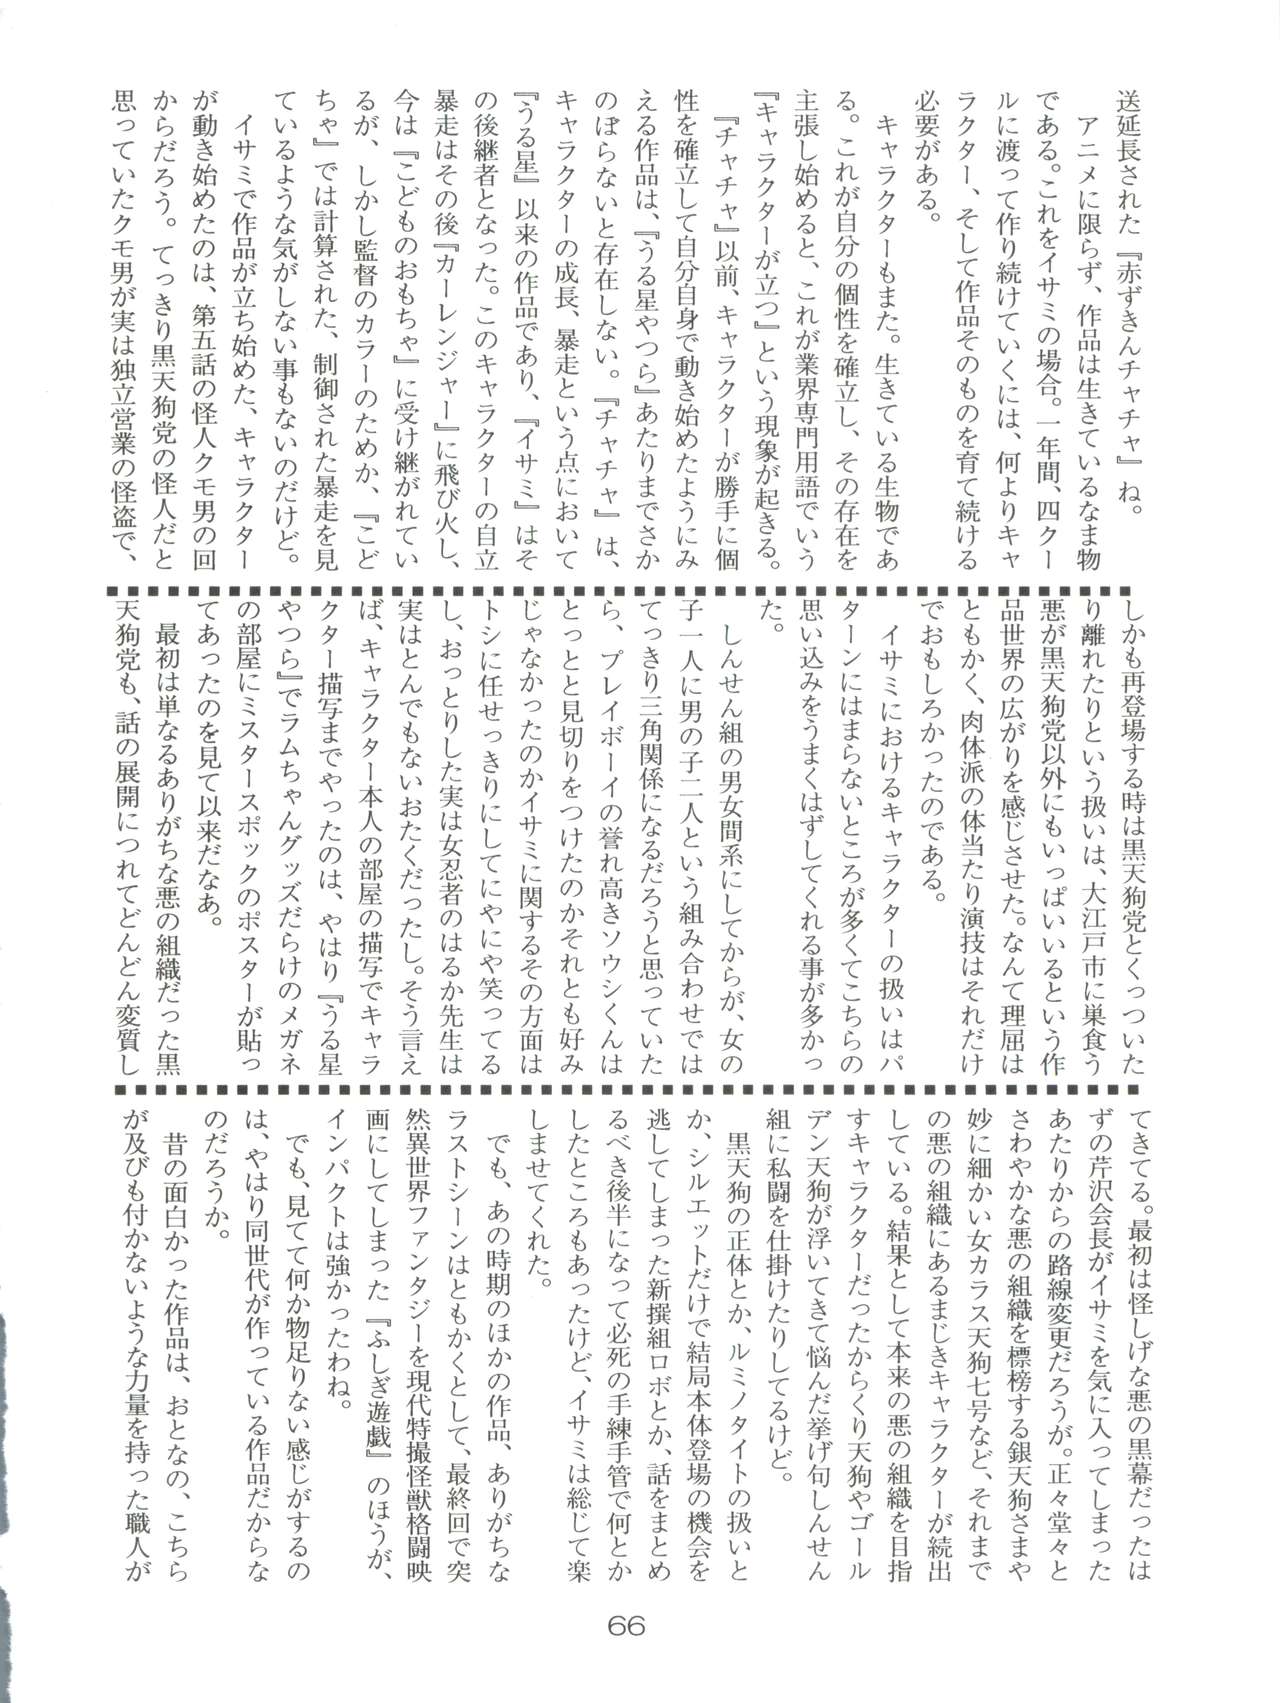 送延長された『赤ずきんチャチャ』ね。
アニメに限らず、作品は生きているなま物
である。これをイサミの場合。一年間、四クー
ルに渡って作り続けていくには、何よりキャ
ラクター、そして作品そのものをを育て続ける
必要がある。
キャラクターもまた。生きている生物であ
る。これが自分の個性を確立し、その存在を
主張し始めると、これが業界専門用語でいう
『キャラクターが立つ』という現象が起きる。
『チャチャ』以前、キャラクターが勝手に個
性を確立して自分自身で動き始めたようにみ
える作品は、『うる星やつら』あたりまでさか
のぼらないと存在しない。『チャチャ』は、
キャラクターの成長、暴走という点において
『うる星』以来の作品であり、『イサミ』はそ
の後継者となった。このキャラクターの自立
暴走はその後『カーレンジャー』に飛び火し、
今は『こどものおもちゃ』に受け継がれてい
るが、しかし監督のカラーのためか、『こど
ちゃ』では計算された、制御された暴走を見
ているような気がしない事もないのだけど。
イサミで作品が立ち始めた、キャラクター
が動き始めたのは、第五話の怪人クモ男の回
からだろう。てっきり黒天狗党の怪人だと
思っていたクモ男が実は独立営業の怪盗で、
しかも再登場する時は黒天狗党とくっついた
り離れたりという扱いは、大江戸市に巣食う
悪が黒天狗党以外にもいっぱいいるという作
品世界の広がりを感じさせた。なんて理屈は
ともかく、肉体派の体当たり演技はそれだけ
でおもしろかったのである。
イサミにおけるキャラクターの扱いはパ
ターンにはまらないところが多くてこちらの
思い込みをうまくはずしてくれる事が多かっ
た。
しんせん組の男女間系にしてからが、女の
子一人に男の子二人という組み合わせでは
てっきり三角関係になるだろうと思っていた
ら、プレイボーイの誉れ高きソウシくんは
とっとと見切りをつけたのかそれとも好み
じゃなかったのかイサミに関するその方面は
トシに任せっきりにしてにやにや笑ってる
し、おっとりした実は女忍者のはるか先生は
実はとんでもないおたくだったし。そう言え
ば、キャラクター本人の部屋の描写でキャラ
クター描写までやったのは、やはり『うる星
やつら』でラムちゃんグッズだらけのメガネ
の部屋にミスタースポックのポスターが貼っ
てあったのを見て以来だなあ。
最初は単なるありがちな悪の組織だった黒
天狗党も、話の展開につれてどんどん変質し
てきてる。最初は怪しげな悪の黒幕だったは
ずの芹沢会長がイサミを気に入ってしまった
あたりからの路線変更だろうが。正々堂々と
さわやかな悪の組織を標榜する銀天狗さまや
妙に細かい女カラス天狗七号など、それまで
の悪の組織にあるまじきキャラクターが続出
している。結果として本来の悪の組織を目指
すキャラクターだったからくり天狗やゴール
デン天狗が浮いてきて悩んだ挙げ句しんせん
組に私闘を仕掛けたりしてるけど。
黒天狗の正体とか、ルミノタイトの扱いと
か、シルエットだけで結局本体登場の機会を
逃してしまった新撰組ロボとか、話をまとめ
るべき後半になって必死の手練手管で何とか
したところもあったけど、イサミは総じて楽
しませてくれた。
でも、あの時期のほかの作品、ありがちな
ラストシーンはともかくとして、最終回で突
然異世界ファンタジーを現代特撮怪獣格闘映
画にしてしまった『ふしぎ遊戯』のほうが、
インパクトは強かったわね。
でも、見てて何か物足りない感じがするの
は、やはり同世代が作っている作品だからな
のだろうか。
昔の面白かった作品は、おとなの、こちら
が及びも付かないような力量を持った職人が
66